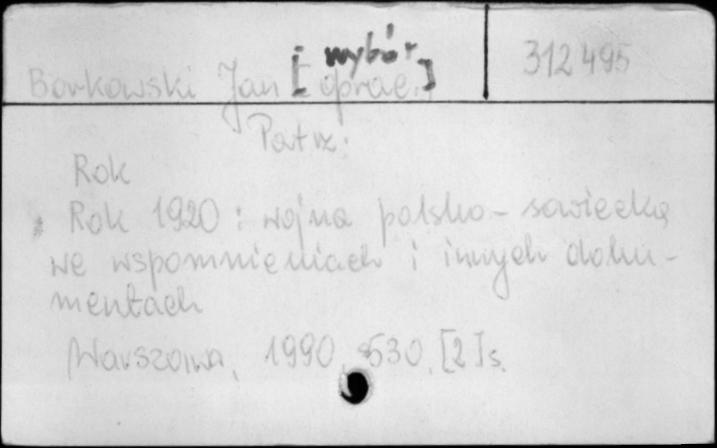 Borkowski Jan [oprac. i wybór] 312495
Patrz:
Rok
Rok 1920 : wojna polsko-sowiecka
we wspomnieniach i innych doku-
mentach
Warszawa, 1990, 530, [2] s.